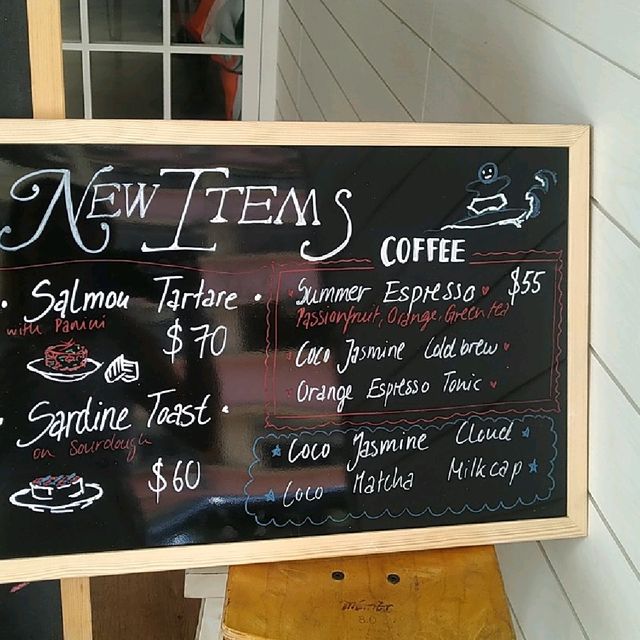 New Items
• Salmon Tartare •
with Panini
$70
Sardine Toast •
on Sourdough
$60
COFFEE
Summer Espresso $55
Passionfruit, Orange, Green tea
Coco Jasmine Cold brew
Orange Espresso Tonic
Coco Jasmine Cloud
Coco Matcha Milkcap